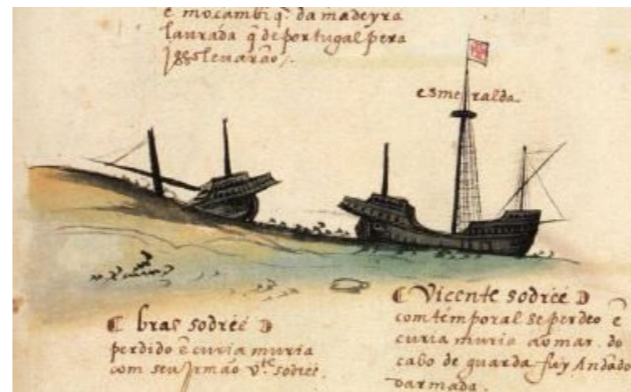 e moçambiq̃. da madeyra
laurada q̃ de portugal pera
isso leuarão/.
esmeralda.
bras sodréé
perdido ẽ curia muria
com seu Irmão v.te sodréé.
Vicente sodréé
com temporal se perdeo ẽ
curia muria ao mar. do
cabo de guarda fuy Andãdo
darmada